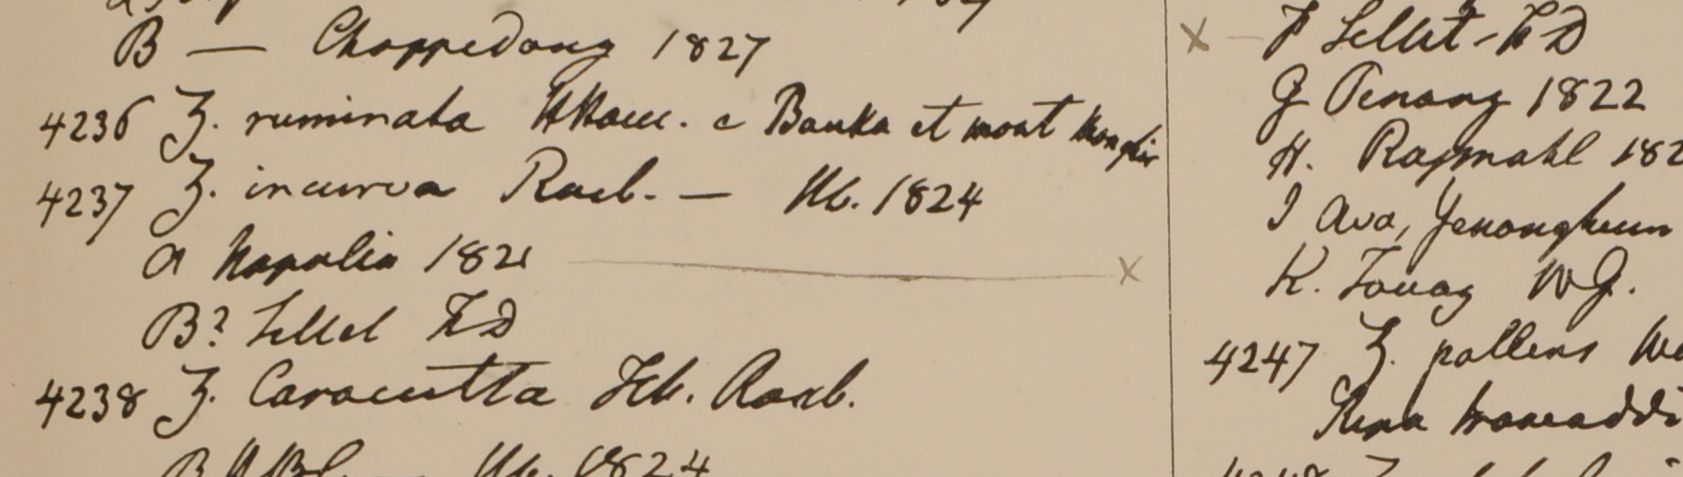 B — Choppedong 1827
4236 Z. ruminata e Banka et mont
4237 Z. incurva Roxb. — Hb. 1824
a Napalia 1821
B? Sillet FD
4238 Z. Caracutta Hb. Roxb.
Hb. 1824
F Sillet - FD
G Penang 1822
H. Rajmahl 182
I Ava, Yenangheum
K. Tavoy WG.
4247 Z. pallens
Ripa